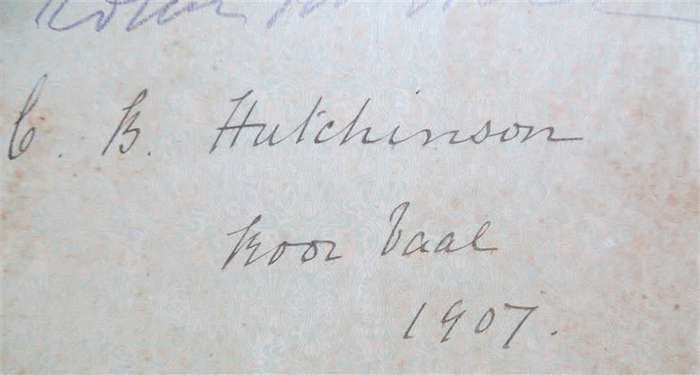 C. B. Hutchinson
Koor Vaal
1907.